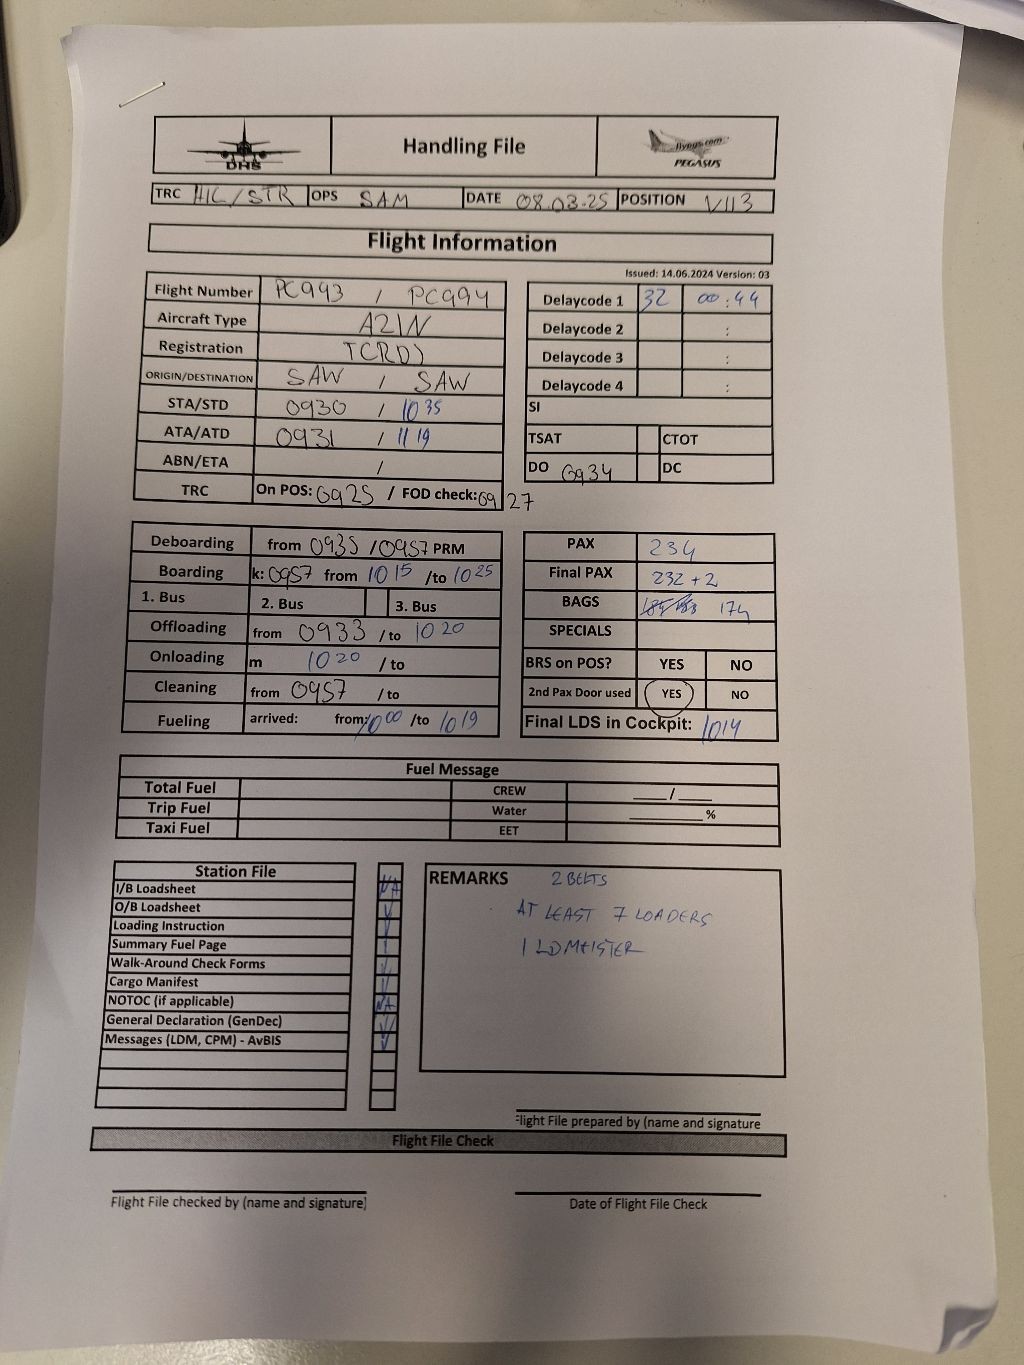 DHS
Handling File
flypgs.com
PEGASUS
TRC HIC/STR OPS SAM DATE 08.03.25 POSITION V113
Flight Information
Issued: 14.06.2024 Version: 03
Flight Number PC993 / PC994
Aircraft Type A21N
Registration
ORIGIN/DESTINATION SAW / SAW
STA/STD 0930 / 1035
ATA/ATD 0931 / 1119
ABN/ETA /
TRC On POS: 0925 / FOD check: 09 27
Delaycode 1 32 00:44
Delaycode 2 :
Delaycode 3 :
Delaycode 4 :
SI
TSAT CTOT
DO 0934 DC
Deboarding from 0935 /0957 PRM
Boarding k: 0957 from 1015 /to 1025
1. Bus 2. Bus 3. Bus
Offloading from 0933 /to 1020
Onloading m 1020 /to
Cleaning from 0957 /to
Fueling arrived: from: 1000 /to 1019
PAX 234
Final PAX 232 + 2
BAGS 174
SPECIALS
BRS on POS? YES NO
2nd Pax Door used YES NO
Final LDS in Cockpit: 1014
Fuel Message
Total Fuel CREW ___/___
Trip Fuel Water ________%
Taxi Fuel EET
Station File
I/B Loadsheet NA
O/B Loadsheet
Loading Instruction
Summary Fuel Page
Walk-Around Check Forms
Cargo Manifest
NOTOC (if applicable) NA
General Declaration (GenDec)
Messages (LDM, CPM) - AvBIS
REMARKS 2 BELTS
AT LEAST 7 LOADERS
1 LDMEISTER
Flight File prepared by (name and signature
Flight File Check
Flight File checked by (name and signature)
Date of Flight File Check